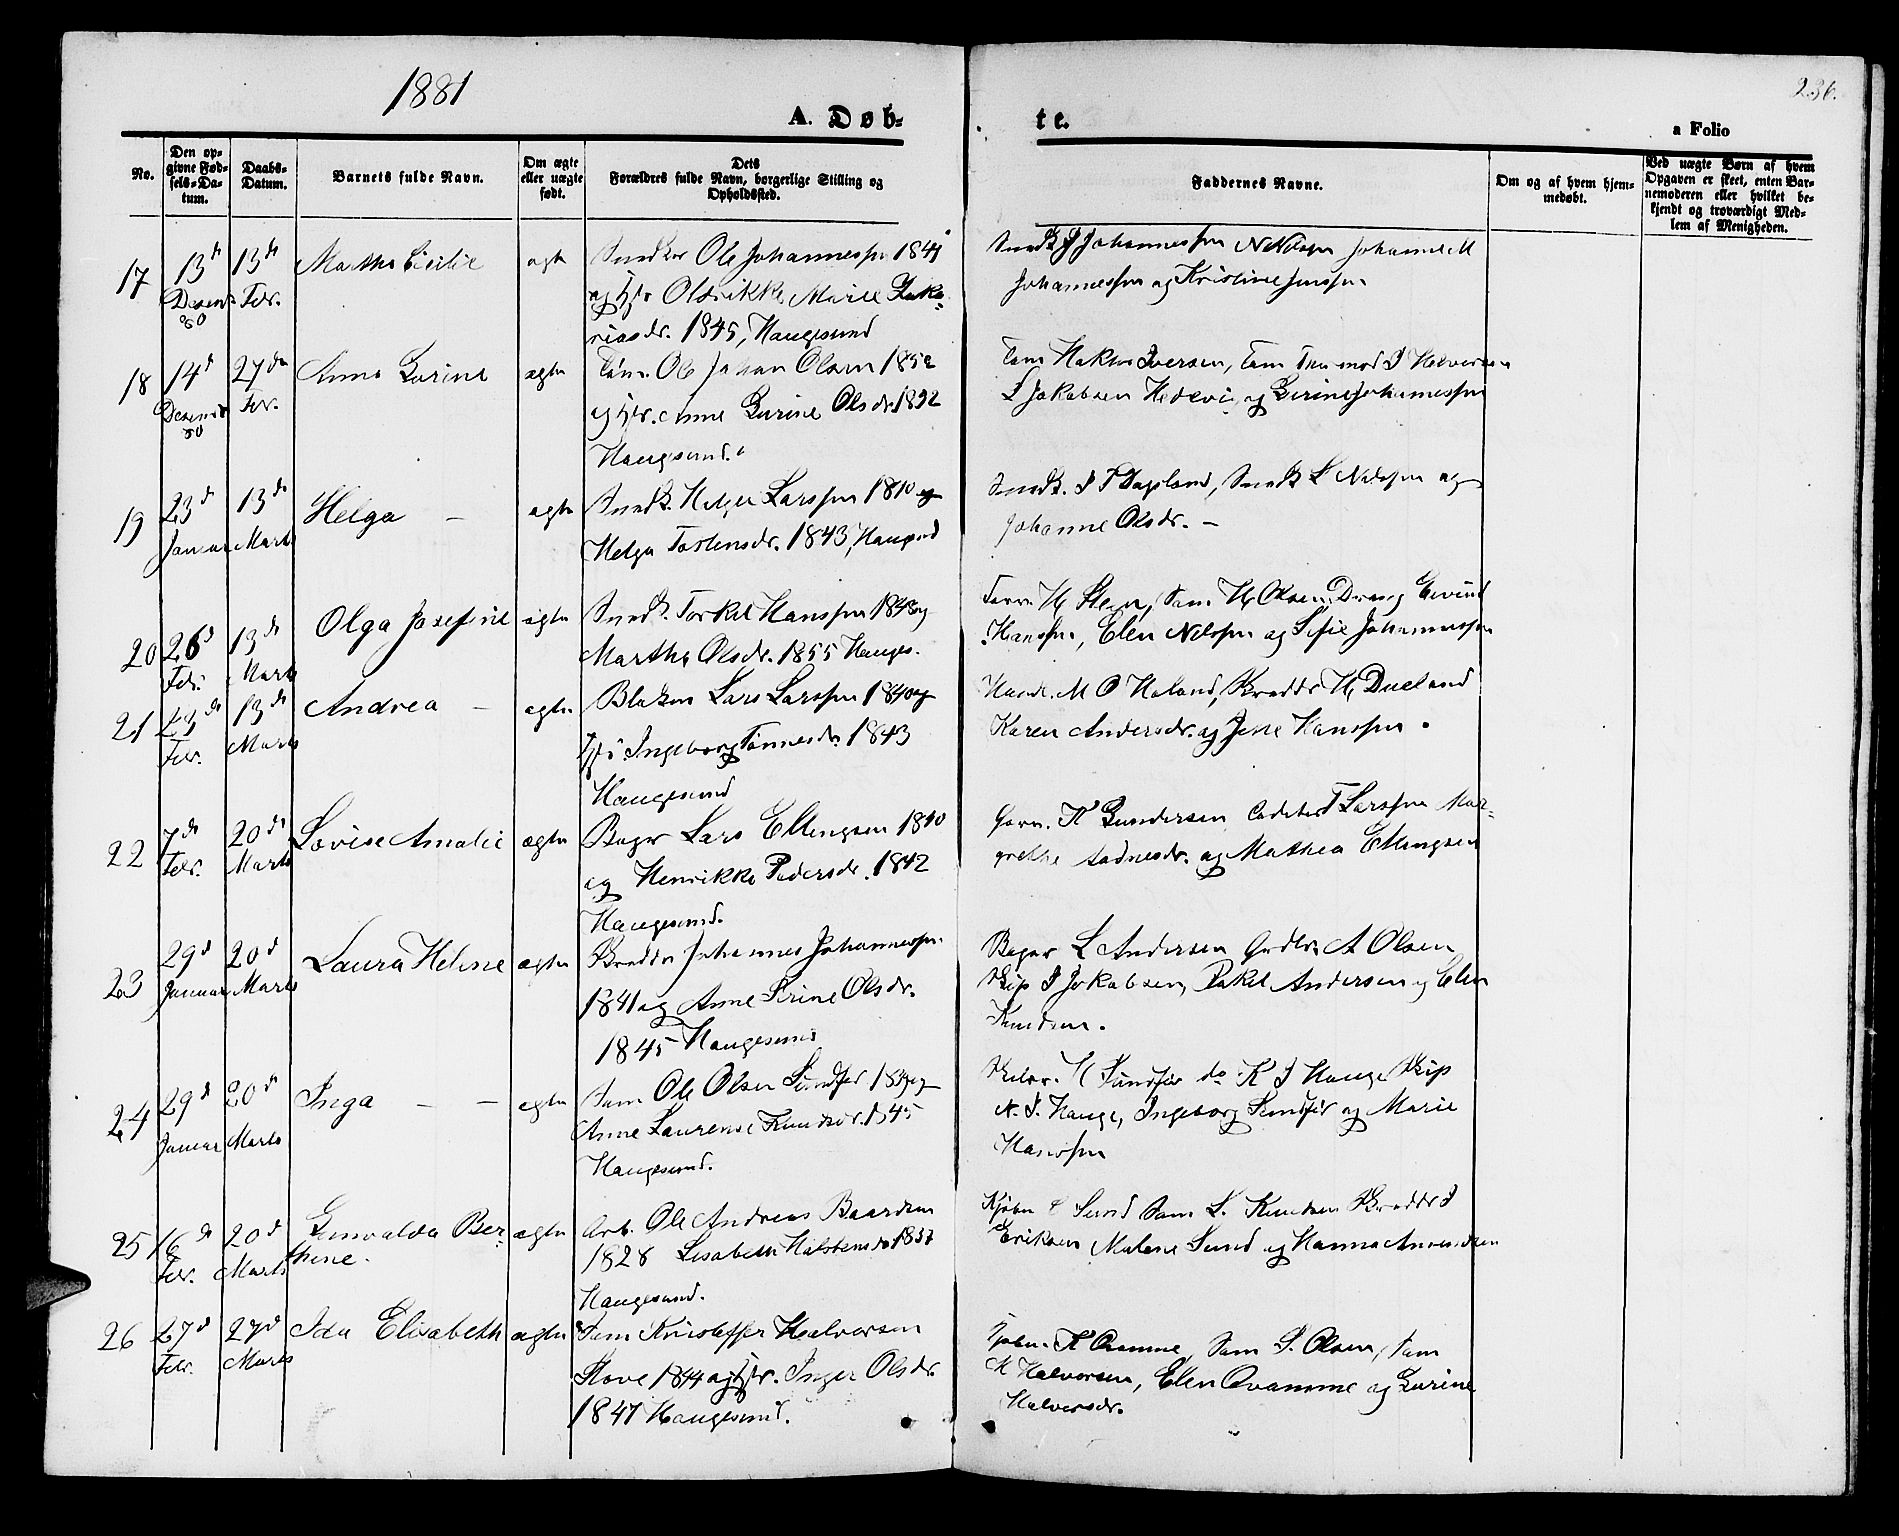 1881
236.
A. Døb-
te.
a Folio
No.
Den op-
givne Fød-
sels-Da-
tum.
Daabs-
Datum.
Barnets fulde Navn.
Om ægte
eller uægte
født.
Dets
Forældres fulde Navn, borgerlige Stilling og
Opholdssted.
Faddernes Navne.
Om og af hvem hjem-
medøbt.
Ved uægte Børn af hvem
Opgaven er skeet, enten Bar-
nemoderen eller hvilket be-
kjendt og troværdigt Med-
lem af Menigheden.
17
13de
Desem
80
13de
Febr.
Martha Cicilie
ægte
Snedker Ole Johannessen 1841
og Hst Olrikke Marie Zaka-
riasdr. 1845, Haugesund
Snedk J Johannessen N Nilssen Johanne M
Johannessen og Kristine Jenssen
18
14d
Desembr
80
27de
Febr.
Anna Gurine
ægte
Tøn. Ole Johan Olsen 1852
og Hst. Anne Gurine Olsdr. 1852
Haugesund.
Tøm Hakon Iversen, Halvorsen
L Jakobsen Hedevi og Gurine Johannessen
19
23d
Januar
13de
Marts
Helga —
ægte
Snedk. Helge Larssen 1840 og
Helga Tostensdr. 1843, Haugesd
Snedk. Dagsland, Snedk L Nilssen og
Johanne Olsdr. —
20
26d
Febr.
13de
Marts
Olga Josefine
ægte
Snedk. Torkel Hanssen 1848 og
Martha Olsdr. 1855 Hauges.
Farv. H Steen, Søm. H Olsen, Dreng Eivind
Hanssen, Elen Nilssen og Sofie Johannessen
21
23de
Febr.
13de
Marts
Andrea —
ægte
Blakm Lars Larssen 1840 og
Hst Ingeborg Tønnesdr. 1843
Haugesund
Handl. M O Haland, Kreddr H Dueland
Karen Andersdr. og Jene Hanssen.
22
7de
Febr.
20de
Marts
Lovise Amalie
ægte
Bager Lars Ellingsen 1840
og Henrikke Pedersdr. 1842
Haugesund.
Garv. K Gundersen T Larssen Mar-
grethe Aadnesdr. og Mathea Ellingsen
23
29d
Januar
20d
Marts
Laura Helene
ægte
Johannes Johannessen
1841 og Anne Serine Olsdr.
1845 Haugesund
Bager L Andersen A Olsen
Skip J Jakobsen, Rakel Andersen og Elen
Knudsen.
24
29d
Januar
20de
Marts
Inga — —
ægte
Søm Ole Olsen Sundfør 1839 og
Anne Laurense Knudsdr. 1845
Haugesund.
H Sundfør do K J Hauge Skip
N. J. Hauge, Ingeborg Sundfør og Marie
Hanssen
25
16de
Febr.
20d
Marts
Gunvalda Ber-
thine.
ægte
Arb. Ole Andreas Baardsen
1828 Lisabeth Halstensdr 1837
Haugesund.
Kjøbm Sund Søm L. Knudsen
Eriksen Malene Sund og Hanna Amundsen
26
27d
Febr.
27d
Marts
Ida Elisabeth
ægte
Søm Kristoffer Halvorsen
Skove 1844 og Hst. Inger Olsdr.
1847 Haugesund.
Kjøbm. K Qvamme, Søm S. Olsen, Søm
M Halvorsen, Elen Qvamme og Gurine
Halvorsdr.